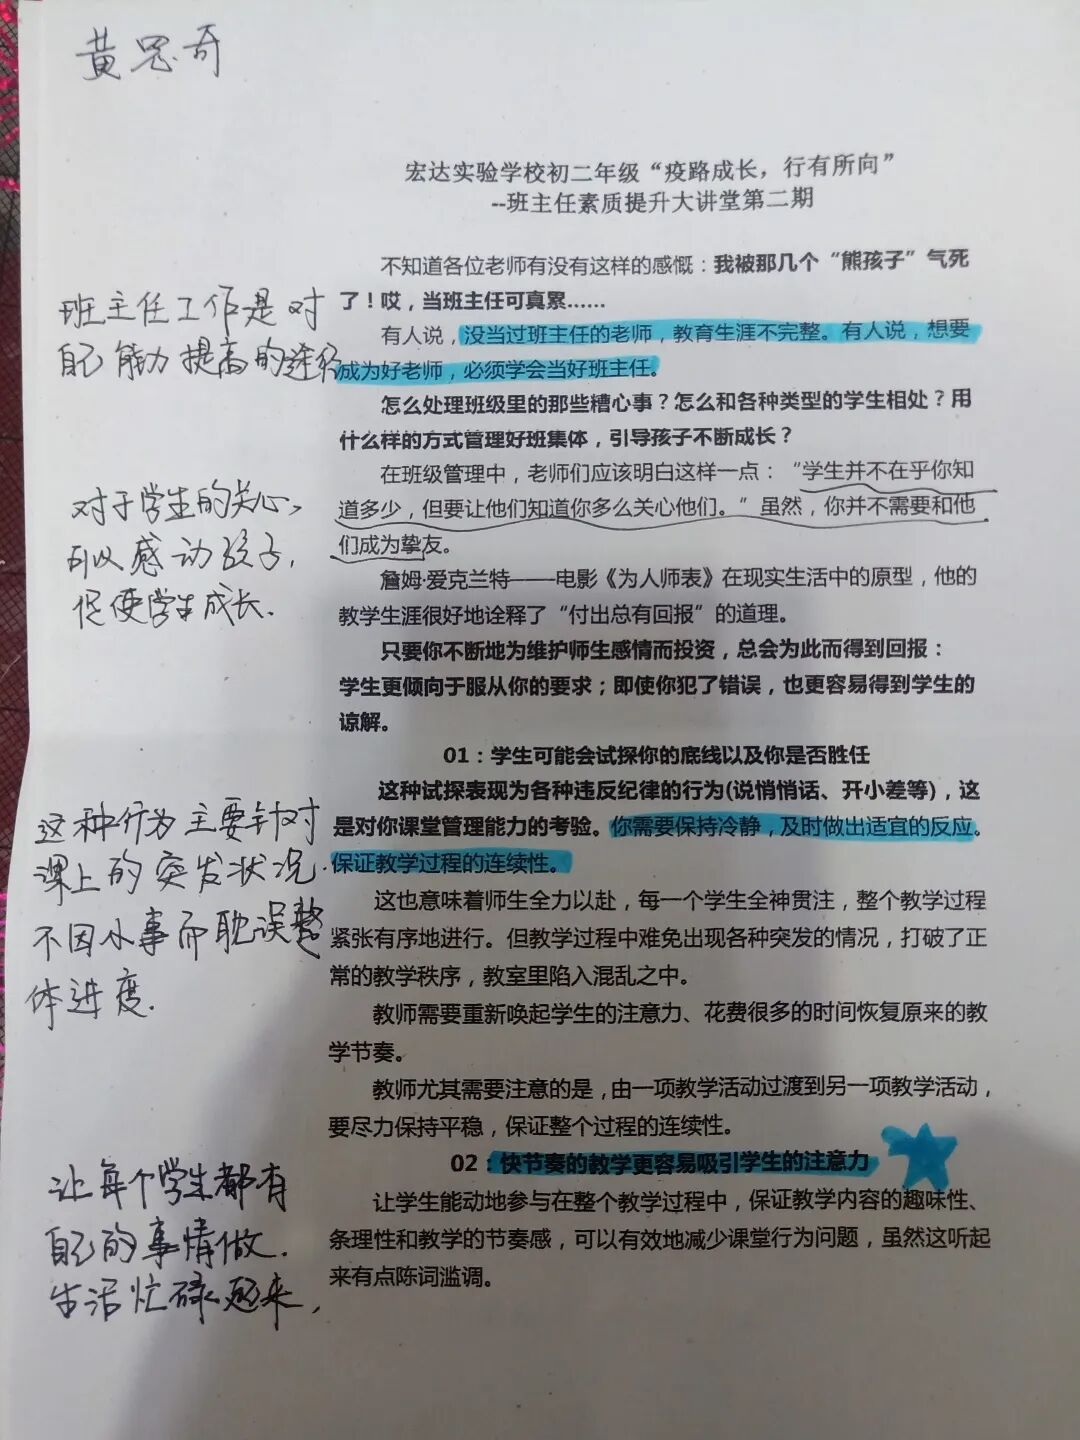 黄思奇
宏达实验学校初二年级“疫路成长，行有所向”
--班主任素质提升大讲堂第二期
不知道各位老师有没有这样的感慨：我被那几个“熊孩子”气死
了！哎，当班主任可真累......
有人说，没当过班主任的老师，教育生涯不完整。有人说，想要
成为好老师，必须学会当好班主任。
班主任工作是对
自己能力提高的途径
怎么处理班级里的那些糟心事？怎么和各种类型的学生相处？用
什么样的方式管理好班集体，引导孩子不断成长？
在班级管理中，老师们应该明白这样一点：“学生并不在乎你知
道多少，但要让他们知道你多么关心他们。”虽然，你并不需要和他
们成为挚友。
对于学生的关心，
可以感动孩子，
促使学生成长.
詹姆·爱克兰特——电影《为人师表》在现实生活中的原型，他的
教学生涯很好地诠释了“付出总有回报”的道理。
只要你不断地为维护师生感情而投资，总会为此而得到回报：
学生更倾向于服从你的要求；即使你犯了错误，也更容易得到学生的
谅解。
01：学生可能会试探你的底线以及你是否胜任
这种试探表现为各种违反纪律的行为(说悄悄话、开小差等)，这
是对你课堂管理能力的考验。你需要保持冷静，及时做出适宜的反应。
保证教学过程的连续性。
这种行为主要针对
课上的突发状况.
不因小事而耽误整
体进度.
这也意味着师生全力以赴，每一个学生全神贯注，整个教学过程
紧张有序地进行。但教学过程中难免出现各种突发的情况，打破了正
常的教学秩序，教室里陷入混乱之中。
教师需要重新唤起学生的注意力、花费很多的时间恢复原来的教
学节奏。
教师尤其需要注意的是，由一项教学活动过渡到另一项教学活动，
要尽力保持平稳，保证整个过程的连续性。
02：快节奏的教学更容易吸引学生的注意力
让学生能动地参与在整个教学过程中，保证教学内容的趣味性、
条理性和教学的节奏感，可以有效地减少课堂行为问题，虽然这听起
来有点陈词滥调。
让每个学生都有
自己的事情做.
生活忙碌起来，